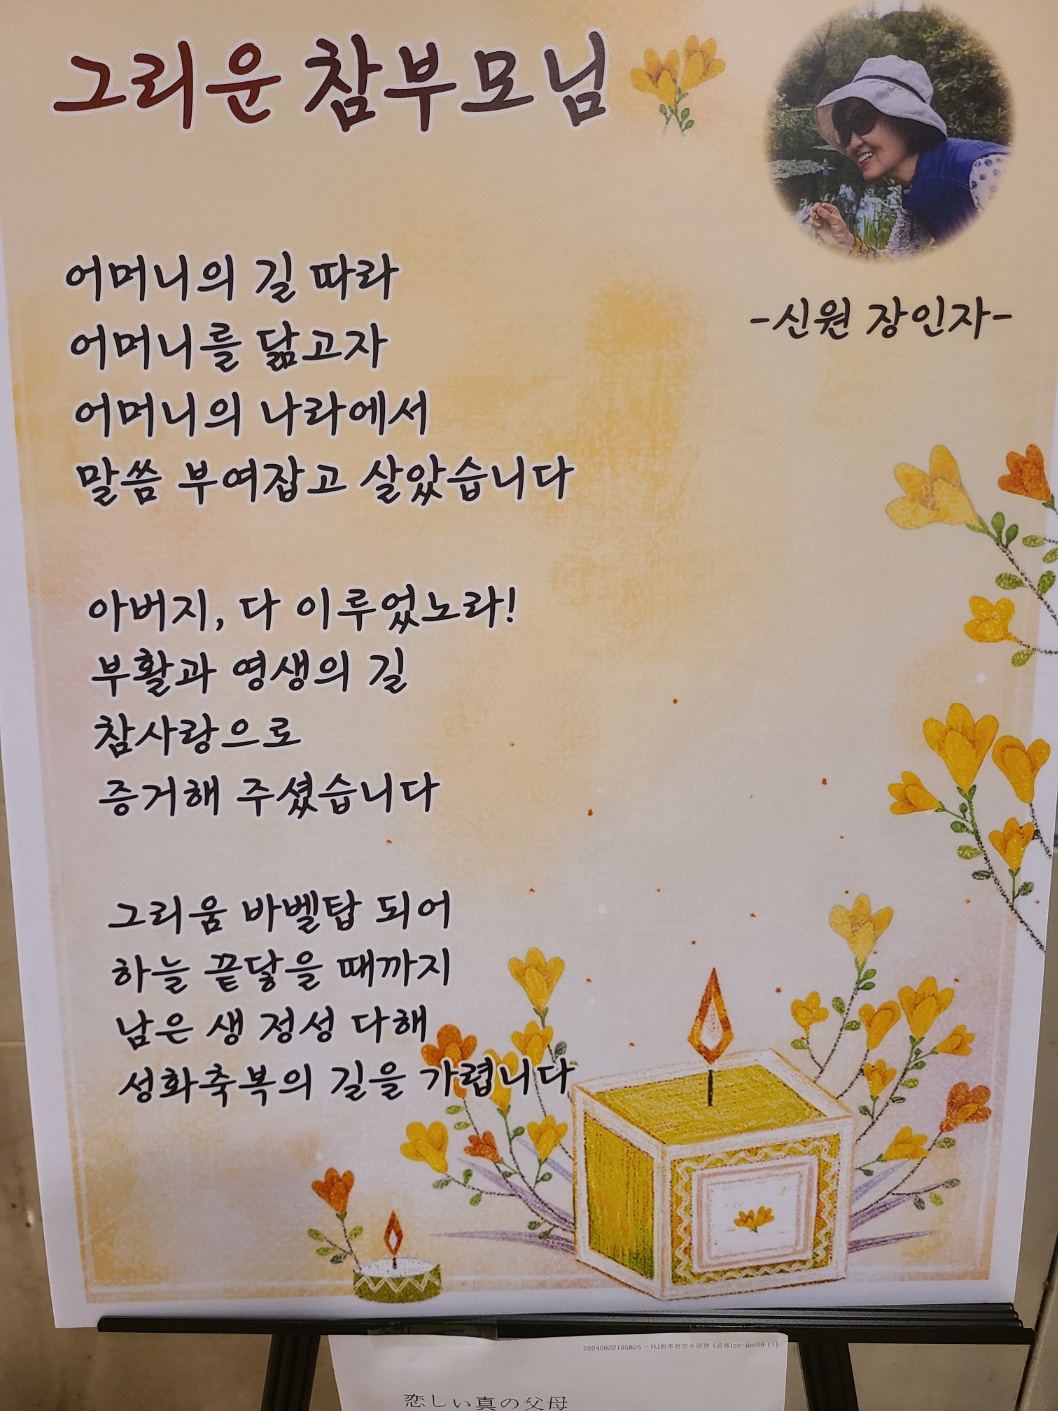 그리운 참부모님
-신원 장인자-
어머니의 길 따라
어머니를 닮고자
어머니의 나라에서
말씀 부여잡고 살았습니다
아버지, 다 이루었노라!
부활과 영생의 길
참사랑으로
증거해 주셨습니다
그리움 바벨탑 되어
하늘 끝닿을 때까지
남은 생 정성 다해
성화축복의 길을 가렵니다
恋しい真の父母